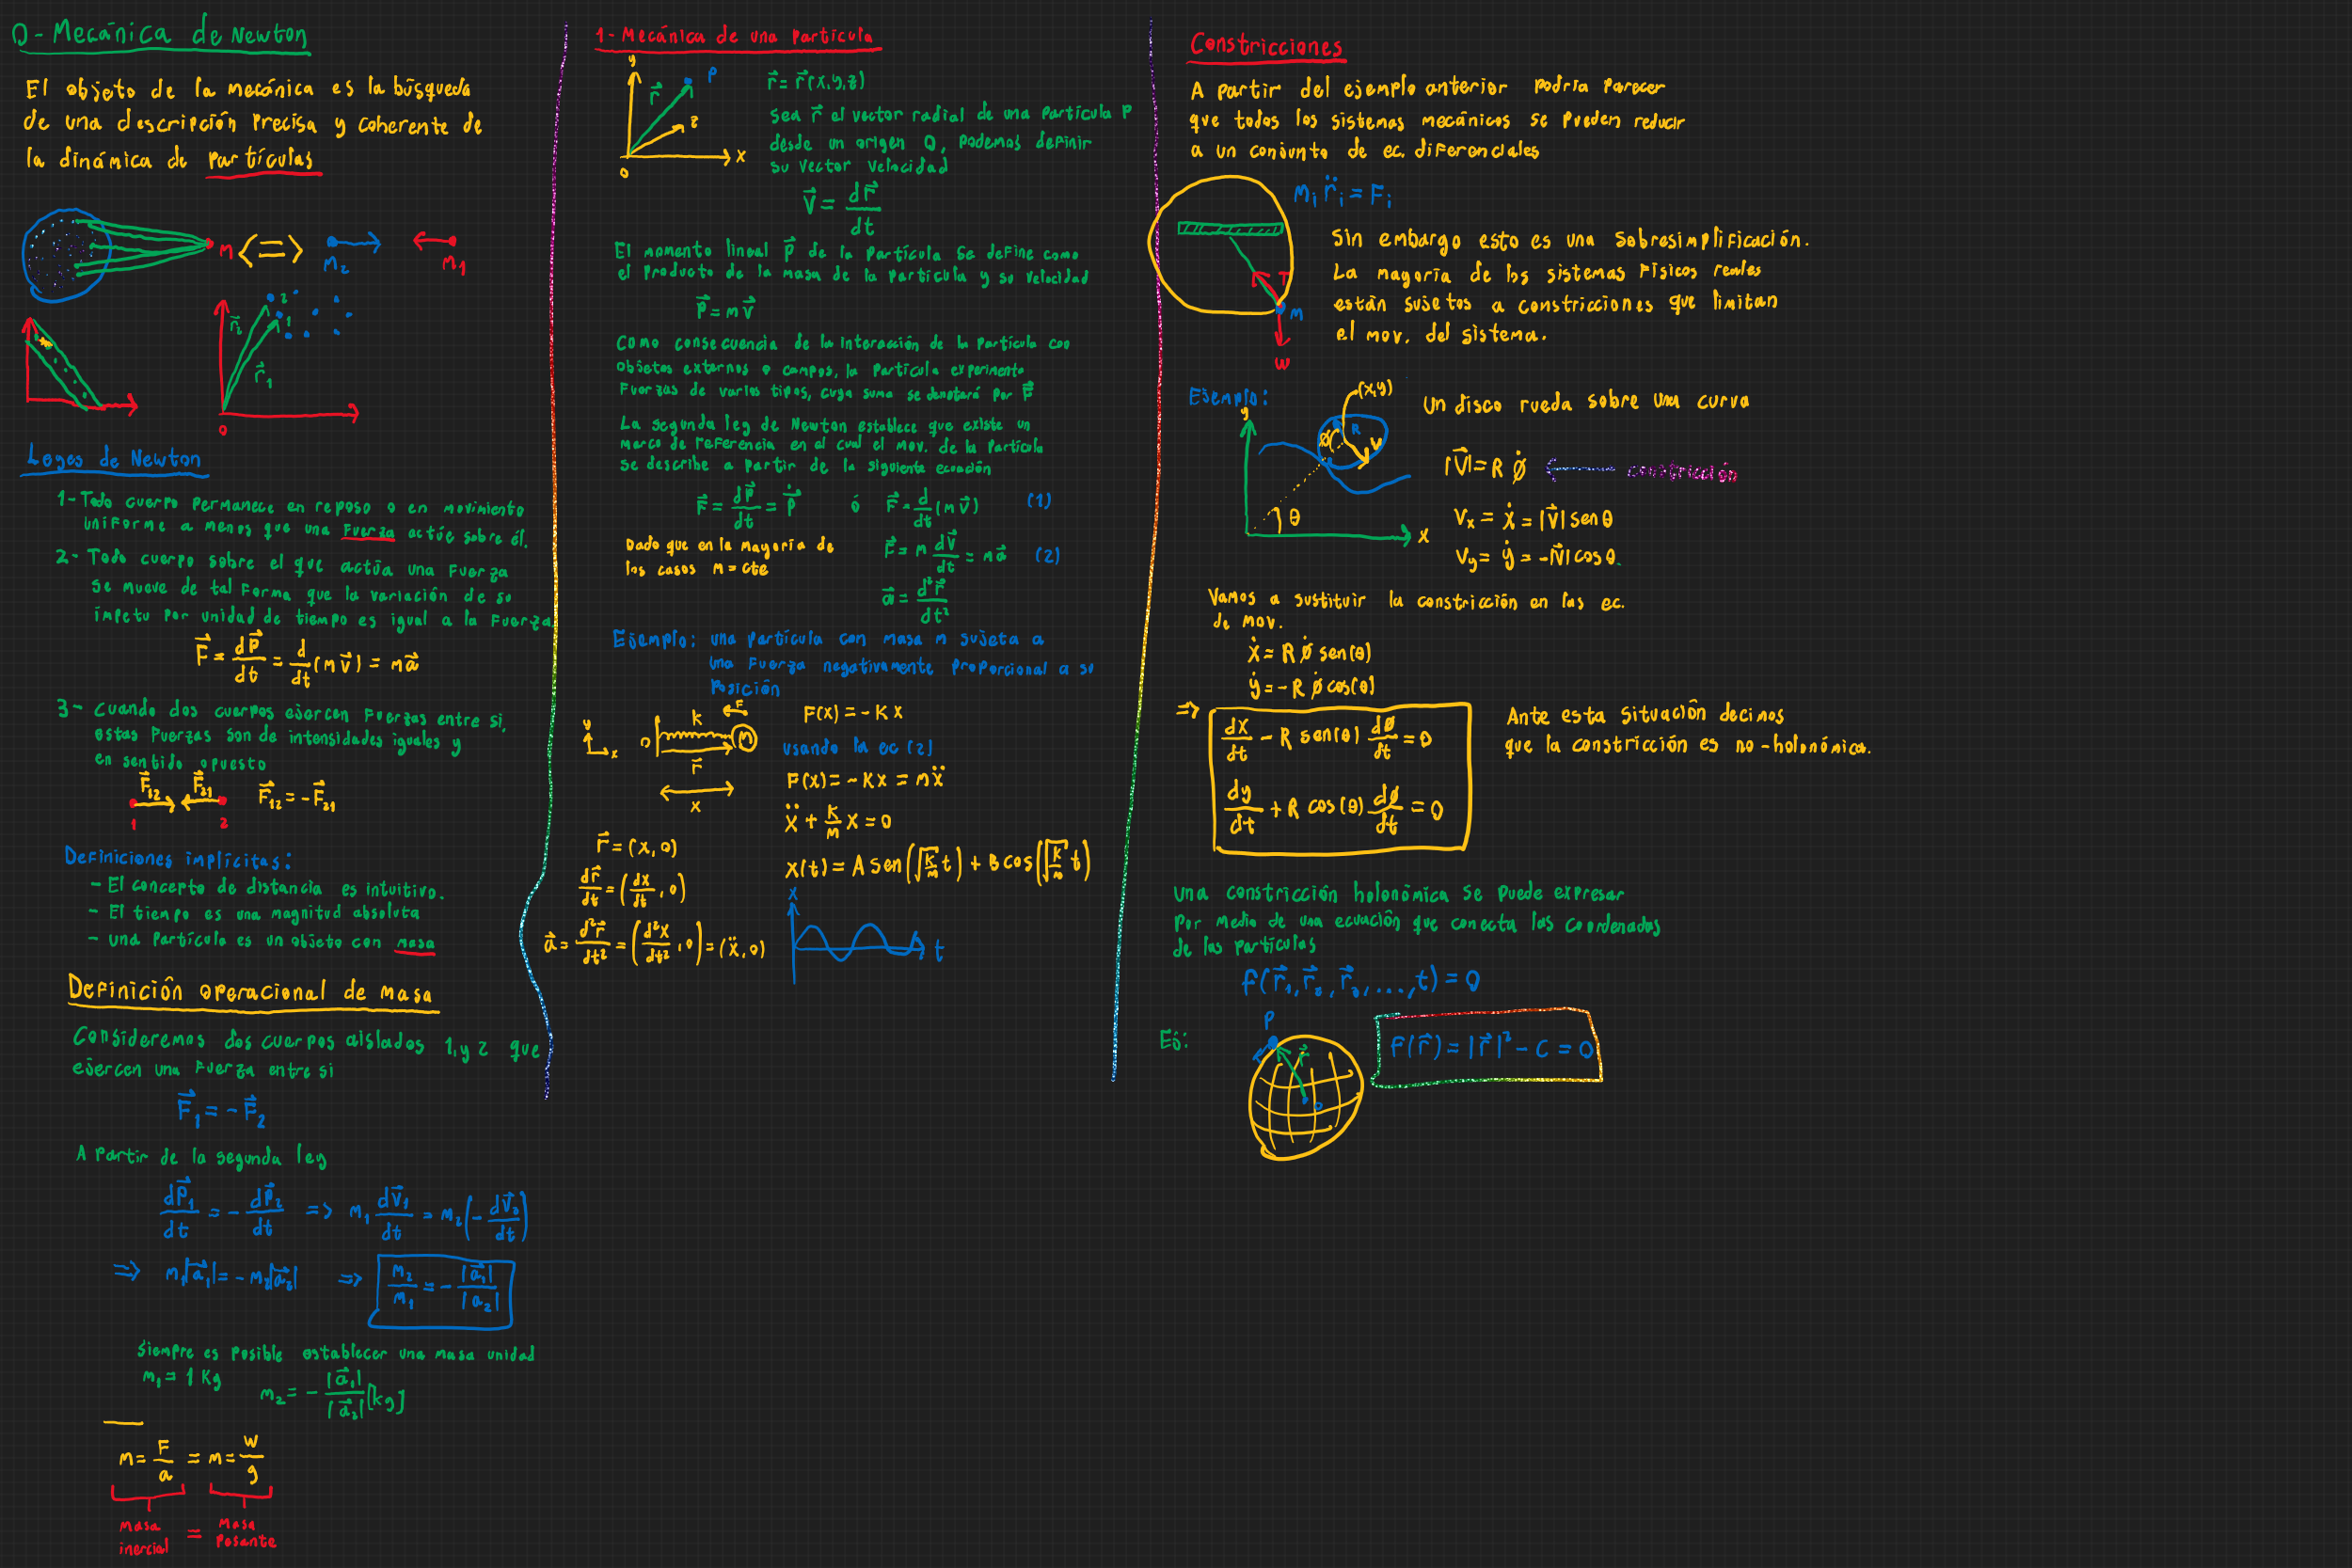 0- Mecánica de Newton
El objeto de la mecánica es la búsqueda
de una descripción precisa y coherente de
la dinámica de partículas
m <=> m₂ m₁
r⃗₂ 2
1
r⃗₁
0
Leyes de Newton
1- Todo cuerpo permanece en reposo o en movimiento
uniforme a menos que una fuerza actúe sobre él.
2- Todo cuerpo sobre el que actúa una fuerza
se mueve de tal forma que la variación de su
ímpetu por unidad de tiempo es igual a la fuerza
F⃗ = dp⃗/dt = d/dt (m v⃗) = m a⃗
3- Cuando dos cuerpos ejercen fuerzas entre si,
estas fuerzas son de intensidades iguales y
en sentido opuesto
F⃗₁₂ F⃗₂₁ F⃗₁₂ = -F⃗₂₁
1 2
Definiciones implícitas:
- El concepto de distancia es intuitivo.
- El tiempo es una magnitud absoluta
- Una partícula es un objeto con masa
Definición operacional de masa
Consideremos dos cuerpos aislados 1, y 2 que
ejercen una fuerza entre si
F⃗₁ = -F⃗₂
A partir de la segunda ley
dp⃗₁/dt = - dp⃗₂/dt => m₁ dv⃗₁/dt = m₂ (- dv⃗₂/dt)
=> m₁|a⃗₁| = -m₂|a⃗₂| => m₂/m₁ = - |a⃗₁|/|a₂|
Siempre es posible establecer una masa unidad
m₁ = 1 Kg m₂ = - |a⃗₁|/|a⃗₂| [kg]
m = F/a = m = W/g
masa inercial = masa pesante
1- Mecánica de una partícula
y
P
r⃗
z
x
0
r⃗ = r⃗(x,y,z)
Sea r⃗ el vector radial de una partícula P
desde un origen O, podemos definir
su vector velocidad
v⃗ = dr⃗/dt
El momento lineal p⃗ de la partícula se define como
el producto de la masa de la partícula y su velocidad
p⃗ = m v⃗
Como consecuencia de la interacción de la partícula con
objetos externos o campos, la partícula experimenta
fuerzas de varios tipos, cuya suma se denotará por F⃗
La segunda ley de Newton establece que existe un
marco de referencia en el cual el mov. de la partícula
se describe a partir de la siguiente ecuación
F⃗ = dp⃗/dt = p⃗̇ ó F⃗ = d/dt (m v⃗) (1)
Dado que en la mayoría de
los casos m = cte
F⃗ = m dv⃗/dt = m a⃗ (2)
a⃗ = d²r⃗/dt²
Ejemplo: una partícula con masa m sujeta a
una fuerza negativamente proporcional a su
posición
y x
0 K F m
r⃗
x
F(x) = -Kx
usando la ec (2)
F(x) = -Kx = mẍ
ẍ + K/m x = 0
x(t) = A sen(√(K/m) t) + B cos(√(K/m) t)
r⃗ = (x, 0)
dr⃗/dt = (dx/dt, 0)
a⃗ = d²r⃗/dt² = (d²x/dt², 0) = (ẍ, 0)
x
t
Constricciones
A partir del ejemplo anterior podría parecer
que todos los sistemas mecánicos se pueden reducir
a un conjunto de ec. diferenciales
mᵢ r̈ᵢ = Fᵢ
T
m
W
Sin embargo esto es una sobresimplificación.
La mayoría de los sistemas físicos reales
están sujetos a constricciones que limitan
el mov. del sistema.
Ejemplo:
y
(x,y)
R
ø
v
θ
x
Un disco rueda sobre una curva
|V⃗| = R ø̇ ← constricción
Vx = ẋ = |V⃗| sen θ
Vy = ẏ = -|V⃗| cos θ.
Vamos a sustituir la constricción en las ec.
de mov.
ẋ = R ø̇ sen(θ)
ẏ = -R ø̇ cos(θ)
=> dx/dt - R sen(θ) dø/dt = 0
dy/dt + R cos(θ) dø/dt = 0
Ante esta situación decimos
que la constricción es no-holonómica.
Una constricción holonómica se puede expresar
por medio de una ecuación que conecta las coordenadas
de las partículas
f(r⃗₁, r⃗₂, r⃗₃, ..., t) = 0
Ej:
P
r⃗
0
f(r⃗) = |r⃗|² - C = 0